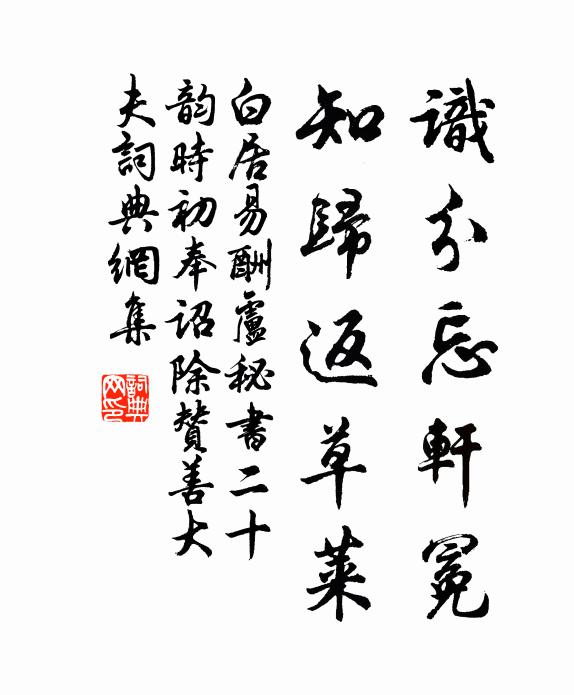 識分忘軒冕
知歸返草萊
白居易酬盧秘書二十
韵時初奉詔除賛善大
夫詞典網集
詞典
网印